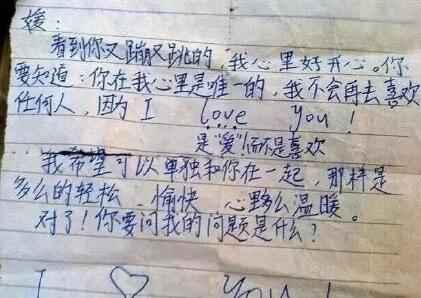 媛:
看到你又蹦又跳的,我心里好开心。你
要知道:你在我心里是唯一的,我不会再去喜欢
任何人,因为 I love you!
是“爱”!而不是喜欢
我希望可以单独和你在一起,那样是
多么的轻松、愉快、心里多么温暖。
对了!你要问我的问题是什么?
I ♡ You!